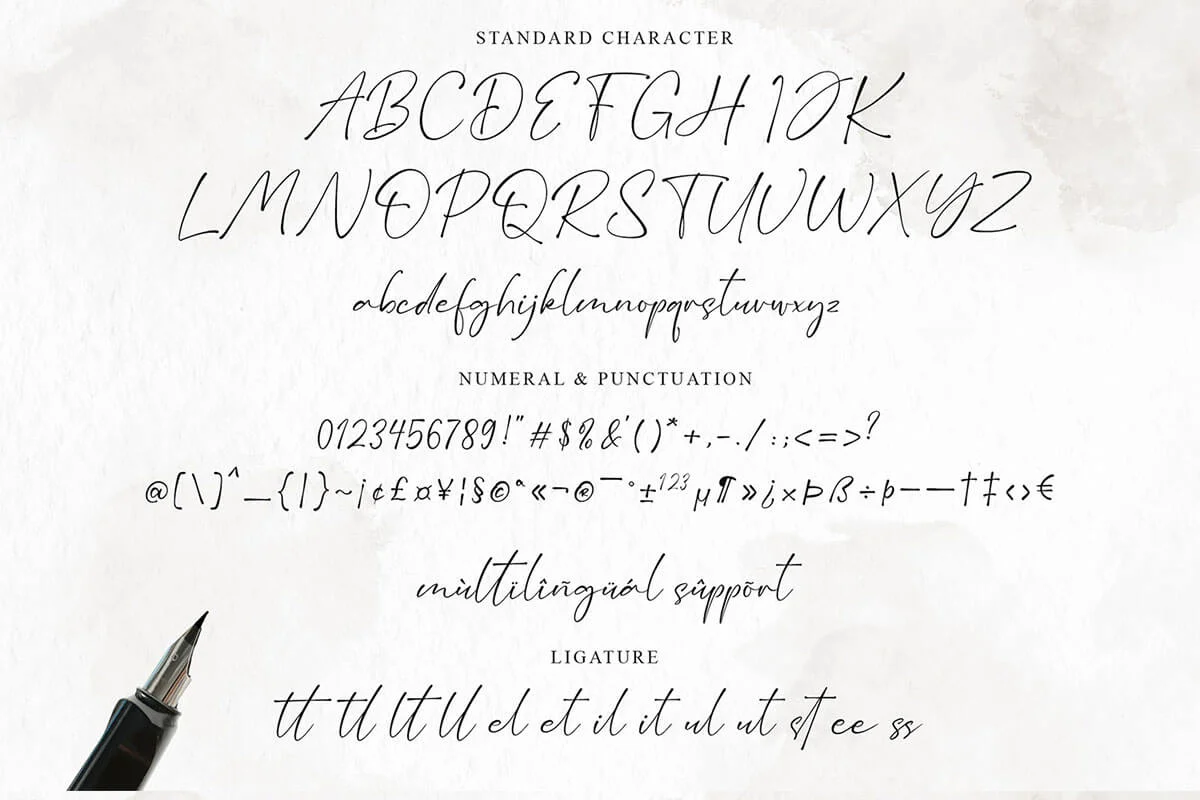 STANDARD CHARACTER
ABCDEFGH IJK
LMNOPQRSTUVWXYZ
abcdefghijklmnopqrstuvwxyz
NUMERAL & PUNCTUATION
0123456789!"#$%&'()*+,-./:;<=>?
@[\]^_{|}~¡¢£¤¥¦§©ª«¬®¯°±²³µ¶»¿×Þß÷þ–—†‡‹›€
mùltïlîñgüál sûppõrt
LIGATURE
tt tl lt ll el et il it ul ut st ee ss